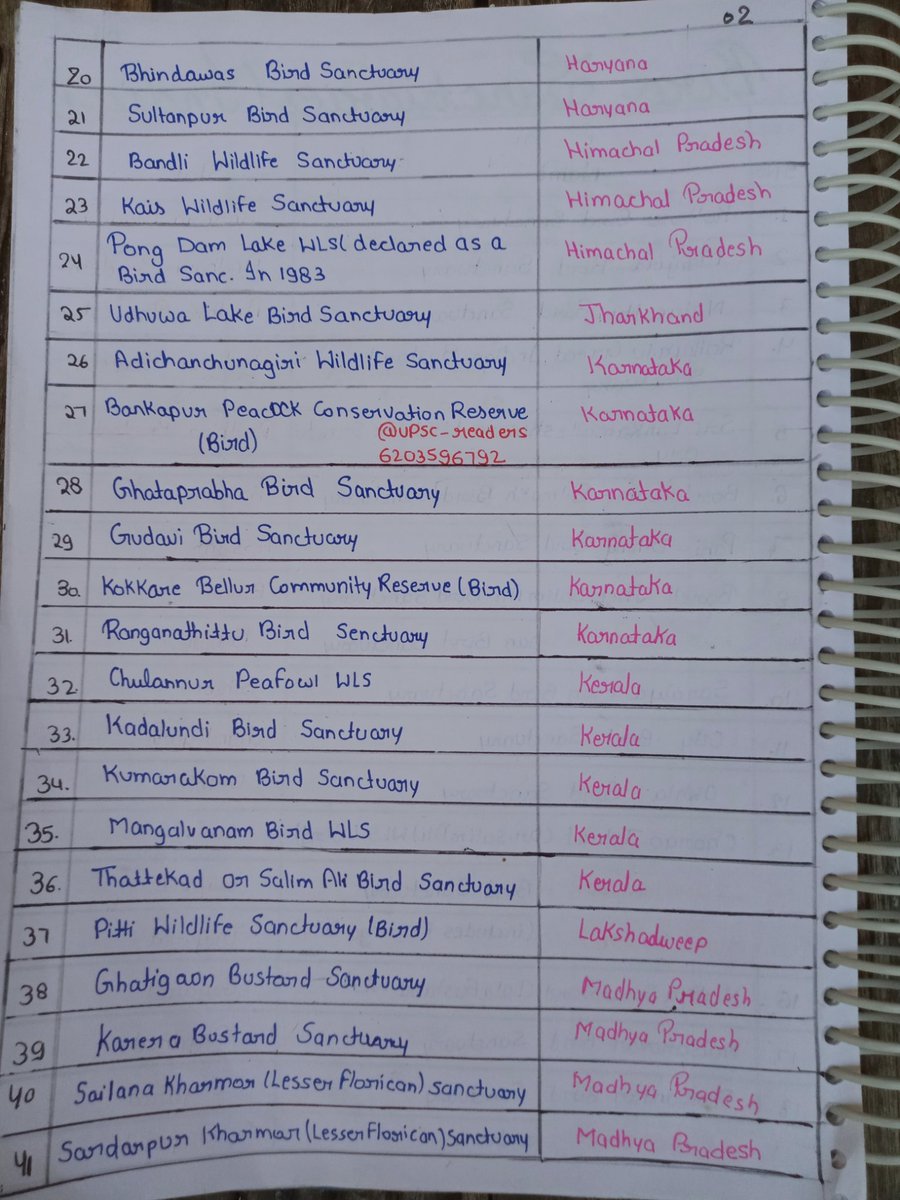 02
20 Bhindawas Bird Sanctuary Haryana
21 Sultanpur Bird Sanctuary Haryana
22 Bandli Wildlife Sanctuary Himachal Pradesh
23 Kais Wildlife Sanctuary Himachal Pradesh
24 Pong Dam Lake WLS( declared as a Himachal Pradesh
Bird Sanc. In 1983
25 Udhuwa Lake Bird Sanctuary Jharkhand
26 Adichanchunagiri Wildlife Sanctuary Karnataka
27 Bankapur Peacock Conservation Reserve Karnataka
(Bird) @UPSC-readers
6203596792
28 Ghataprabha Bird Sanctuary Karnataka
29 Gudavi Bird Sanctuary Karnataka
30. Kokkare Bellur Community Reserve (Bird) Karnataka
31. Ranganathittu Bird Senctuary Karnataka
32. Chulannur Peafowl WLS Kerala
33. Kadalundi Bird Sanctuary Kerala
34. Kumarakom Bird Sanctuary Kerala
35. Mangalvanam Bird WLS Kerala
36. Thattekad or Salim Ali Bird Sanctuary Kerala
37 Pitti Wildlife Sanctuary (Bird) Lakshadweep
38 Ghatigaon Bustard Sanctuary Madhya Pradesh
39 Karera Bustard Sanctuary Madhya Pradesh
40 Sailana Kharmor (Lesser Florican) Sanctuary Madhya Pradesh
41 Sardarpur Kharmar (Lesser Florican) Sanctuary Madhya Pradesh